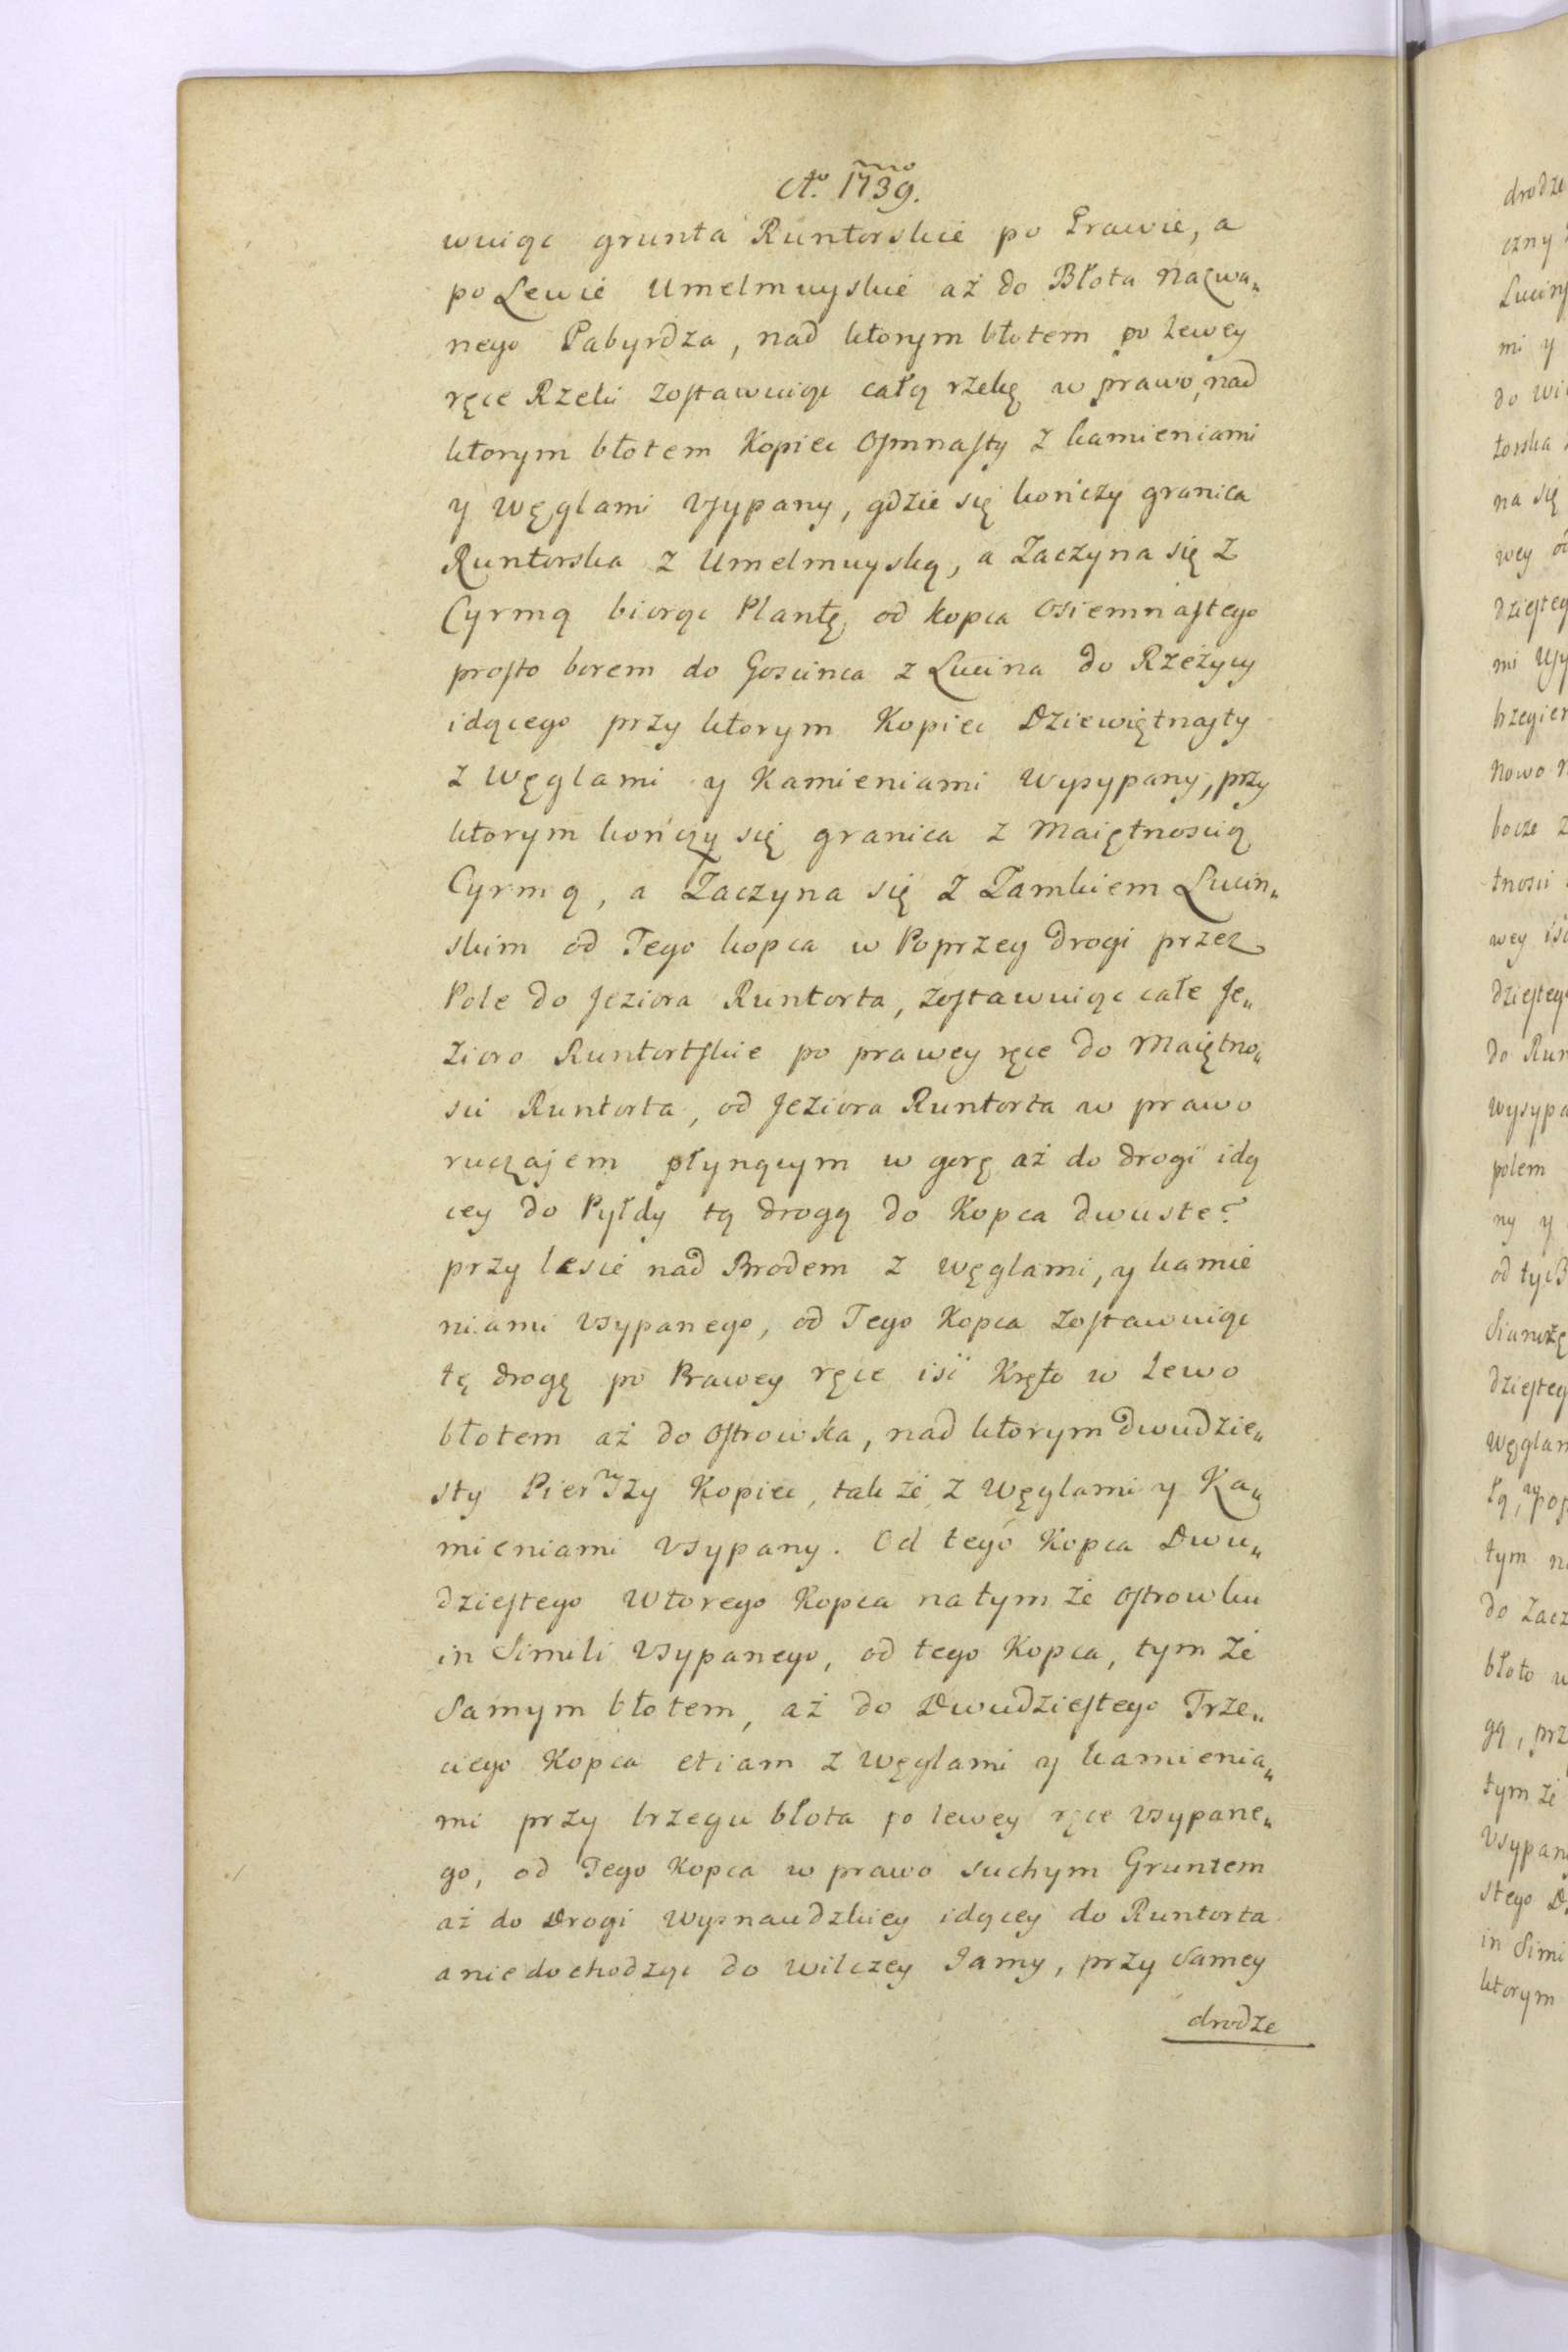 Ao. 1739.mo
wuiąc grunta Runtorskie po Prawie, a
po Lewie Umelmuyskie aż do Błota nazwa„
nego Pabyrdza, nad ktorym błotem po lewey
ręce Rzeki zostawuiąc całą rzekę w prawo, nad
ktorym błotem Kopiec Osmnasty z kamieniami
y Węglami Vsypany, gdzie się kończy granica
Runtorska z Umelmuyską, a Zaczyna się z
Cyrmą biorąc Plantę od kopca Osiemnastego
prosto borem do Goscinca z Lucina do Rzeżycy
idącego przy ktorym Kopiec Dziewiętnasty
z Węglami y Kamieniami Wysypany, przy
ktorym kończy się granica z Maiętnoscią
Cyrmą, a Zaczyna się z Zamkiem Lucin„
skim od Tego kopca w Poprzey drogi przez
Pole do Jeziora Runtorta, zostawuiąc całe Je„
zioro Runtortskie po prawey ręce do Maiętno„
sci Runtorta, od Jeziora Runtorta w prawo
ruczajem płynącym w gorę aż do drogi idą
cey do Pyłdy tą drogą do Kopca dwuste?
przy lesie nad Brodem z węglami, y kamie
niami Vsypanego, od Tego Kopca zostawuiąc
tę drogę po Prawey ręce iśc Kręto w Lewo
błotem aż do Ostrowka, nad ktorym dwudzie„
sty Pierwszy Kopiec, tak że z Węglami y Ka„
mieniami Vsypany. Od tego Kopca Dwu„
dziestego Wtorego Kopca na tym że Ostrowku
in Simili Vsypanego, od tego Kopca, tym że
Samym błotem, aż do Dwudziestego Trze„
ciego Kopca etiam z Węglami y kamienia„
mi przy brzegu błota po lewey ręce Vsypane„
go, od Tego Kopca w prawo suchym Gruntem
aż do Drogi Wysnaudzkiey idącey do Runtorta
a nie dochodząc do Wilczey Jamy, przy Samey
drodze